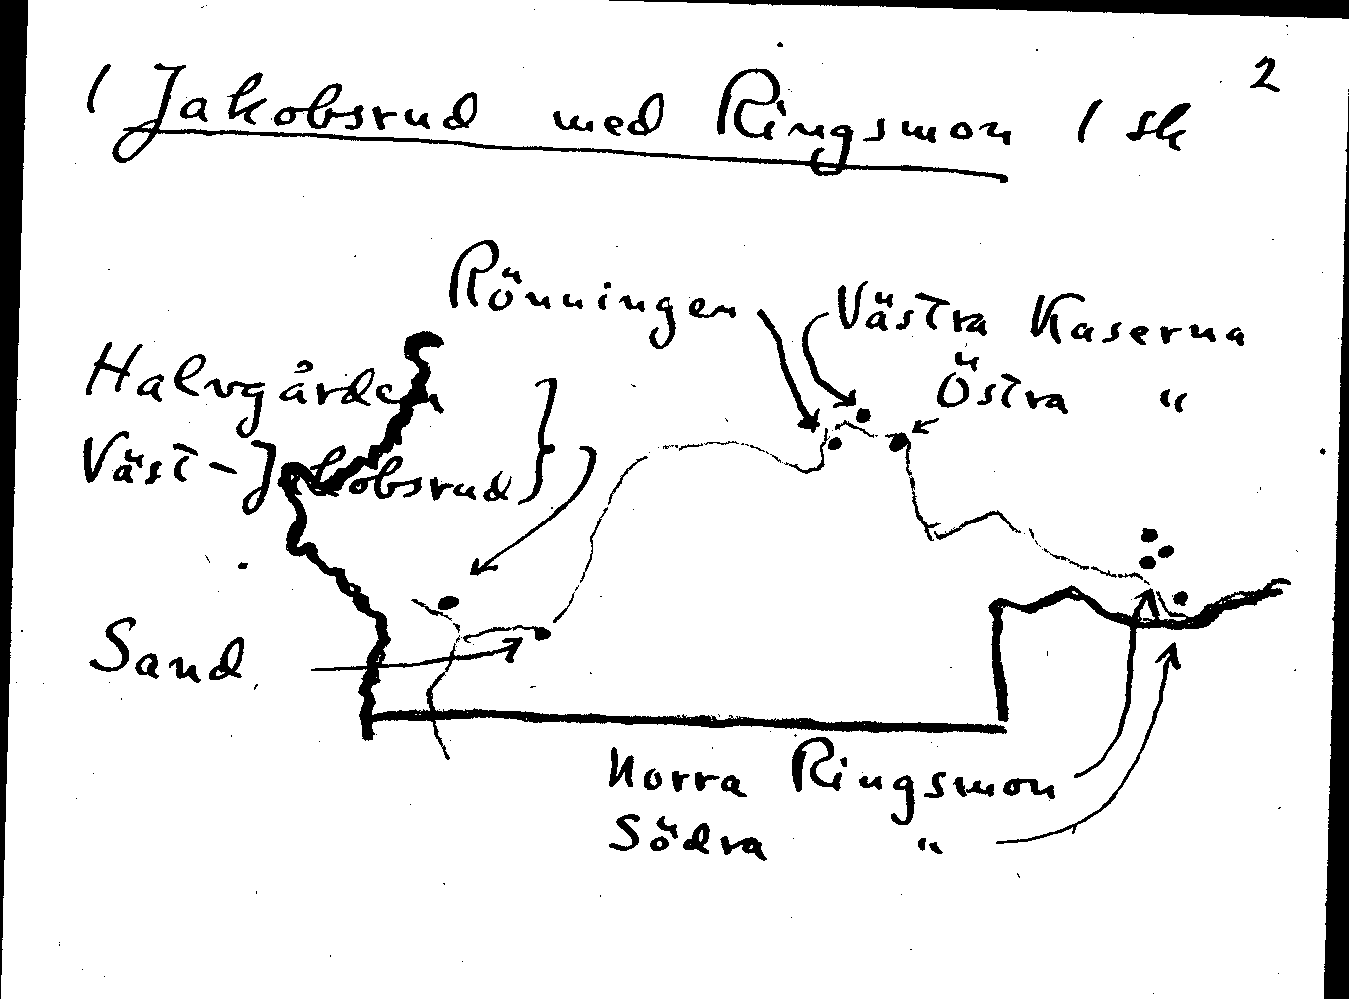 2
( Jakobsrud med Ringsmon / sk
Rönningen
Västra Kaserna
Östra "
Halvgården
Väst-Jakobsrud
Sand
Norra Ringsmon
Södra "